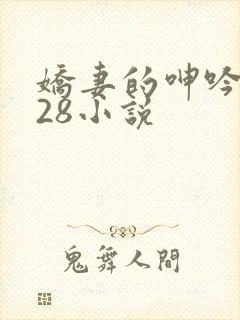 嬌妻的呻吟
28小説
鬼舞人間